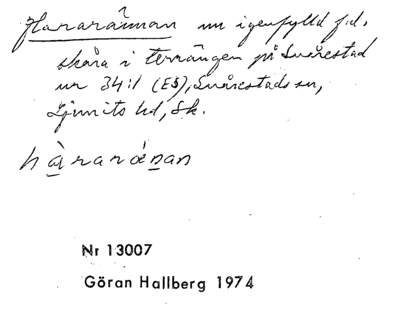 Hararännan nu igenfylld f.d.
skåra i terrängen på Svärestad
nr 34:1 (ES), Svärestads sn,
Ljunits hd, Sk.
hàraránan
Nr 13007
Göran Hallberg 1974